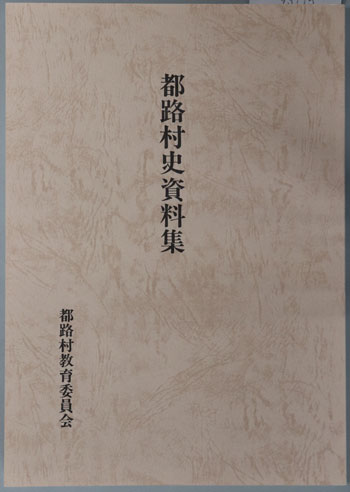 都路村史資料集
都路村教育委員会